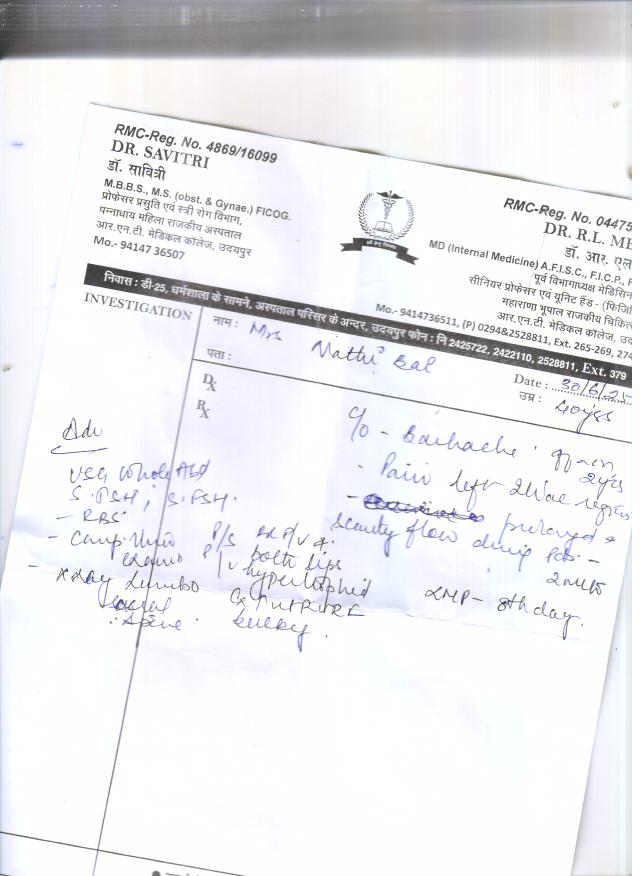 RMC-Reg. No. 4869/16099
DR. SAVITRI
डॉ. सावित्री
M.B.B.S., M.S. (obst. & Gynae.) FICOG.
प्रोफेसर प्रसुति एवं स्त्री रोग विभाग,
पन्नाधाय महिला राजकीय अस्पताल
आर.एन.टी. मेडिकल कॉलेज, उदयपुर
Mo.- 94147 36507
RMC-Reg. No. 04475
DR. R.L. ME
डॉ. आर. एल
MD (Internal Medicine) A.F.I.S.C., F.I.C.P., F
पूर्व विभागाध्यक्ष मेडिसिन
सीनियर प्रोफेसर एवं यूनिट हैड - (फिजि
महाराणा भूपाल राजकीय चिकित
आर.एन.टी. मेडिकल कॉलेज, उद
Mo.- 9414736511, (P) 0294&2528811, Ext. 265-269, 274
निवास : डी-25, धर्मशाला के सामने, अस्पताल परिसर के अन्दर, उदयपुर फोन : नि 2425722, 2422110, 2528811, Ext. 379
INVESTIGATION
नाम : Mrs Nathi Bai
पता :
Date : 30/6/25
उम्र : 40yrs
Dx
Rx
C/o - Backache
2yrs
- Pain left Iliac region
-
scanty flow during
LMP - 8th day
Adv
USG Whole Abd
S. TSH, S. FSH.
- RBS
- Comp. Urine
exam
- X ray Lumbo
sacral
spine
P/S
P/V both lips
hypertrophied
bulky.